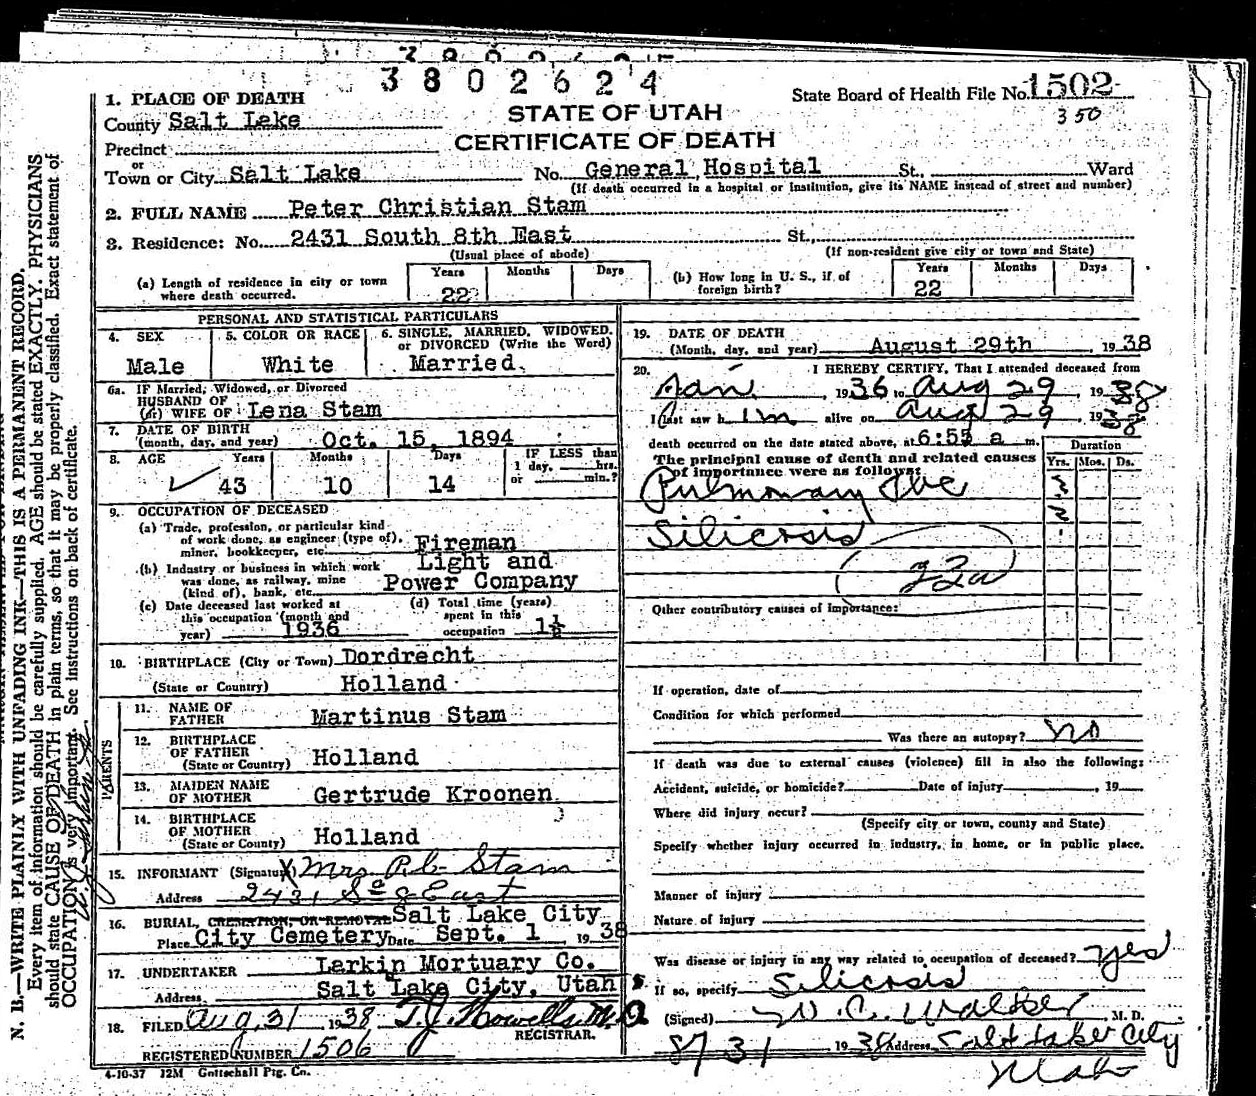 3802624
1. PLACE OF DEATH
State Board of Health File No. 1502
350
County Salt Lake
STATE OF UTAH
CERTIFICATE OF DEATH
Precinct
or
Town or City Salt Lake No. General Hospital St. Ward
(If death occurred in a hospital or institution, give its NAME instead of street and number)
2. FULL NAME Peter Christian Stam
3. Residence: No. 2431 South 8th East St.
(Usual place of abode) (If non-resident give city or town and State)
(a) Length of residence in city or town where death occurred. Years 22 Months Days
(b) How long in U. S., if of foreign birth? Years 22 Months Days
PERSONAL AND STATISTICAL PARTICULARS
4. SEX Male
5. COLOR OR RACE White
6. SINGLE, MARRIED, WIDOWED, or DIVORCED (Write the Word) Married
6a. IF Married, Widowed, or Divorced
HUSBAND OF
(or) WIFE OF Lena Stam
7. DATE OF BIRTH
(month, day, and year) Oct. 15, 1894
8. AGE Years 43 Months 10 Days 14
IF LESS than
1 day, hrs.
or min.?
9. OCCUPATION OF DECEASED
(a) Trade, profession, or particular kind
of work done, as engineer (type of),
miner, bookkeeper, etc. Fireman
(b) Industry or business in which work
was done, as railway, mine
(kind of), bank, etc. Light and Power Company
(c) Date deceased last worked at
this occupation (month and
year) 1936
(d) Total time (years)
spent in this
occupation 1½
10. BIRTHPLACE (City or Town) Dordrecht
(State or Country) Holland
PARENTS
11. NAME OF FATHER Martinus Stam
12. BIRTHPLACE OF FATHER
(State or Country) Holland
13. MAIDEN NAME OF MOTHER Gertrude Kroonen
14. BIRTHPLACE OF MOTHER
(State or Country) Holland
15. INFORMANT (Signature) X Mrs. P.C. Stam
Address 2431 So 8 East
16. BURIAL, CREMATION, OR REMOVAL Salt Lake City
Place City Cemetery Date Sept. 1, 1938
17. UNDERTAKER Larkin Mortuary Co.
Address Salt Lake City, Utah
18. FILED Aug, 31 1938 T.J. Howells M.D.
REGISTRAR.
REGISTERED NUMBER 1506
4-10-37 12M Gottschall Ptg. Co.
19. DATE OF DEATH
(Month, day, and year) August 29th, 1938
20. I HEREBY CERTIFY, That I attended deceased from
Jan. 1936 to Aug 29, 1938
I last saw him alive on Aug 29, 1938
death occurred on the date stated above, at 6:55 a m.
The principal cause of death and related causes
of importance were as follows:
Duration
Yrs. Mos. Ds.
Pulmonary Tbc
Silicosis
23a
Other contributory causes of importance:
If operation, date of
Condition for which performed
Was there an autopsy? no
If death was due to external causes (violence) fill in also the following:
Accident, suicide, or homicide? Date of injury , 19
Where did injury occur?
(Specify city or town, county and State)
Specify whether injury occurred in industry, in home, or in public place.
Manner of injury
Nature of injury
Was disease or injury in any way related to occupation of deceased? yes
If so, specify Silicosis
(Signed) W. C. Walker, M. D.
8/31 1938 Address Salt Lake City
Utah
N. B.—WRITE PLAINLY WITH UNFADING INK—THIS IS A PERMANENT RECORD.
Every item of information should be carefully supplied. AGE should be stated EXACTLY. PHYSICIANS
should state CAUSE OF DEATH in plain terms, so that it may be properly classified. Exact statement of
OCCUPATION is very important. See instructions on back of certificate.